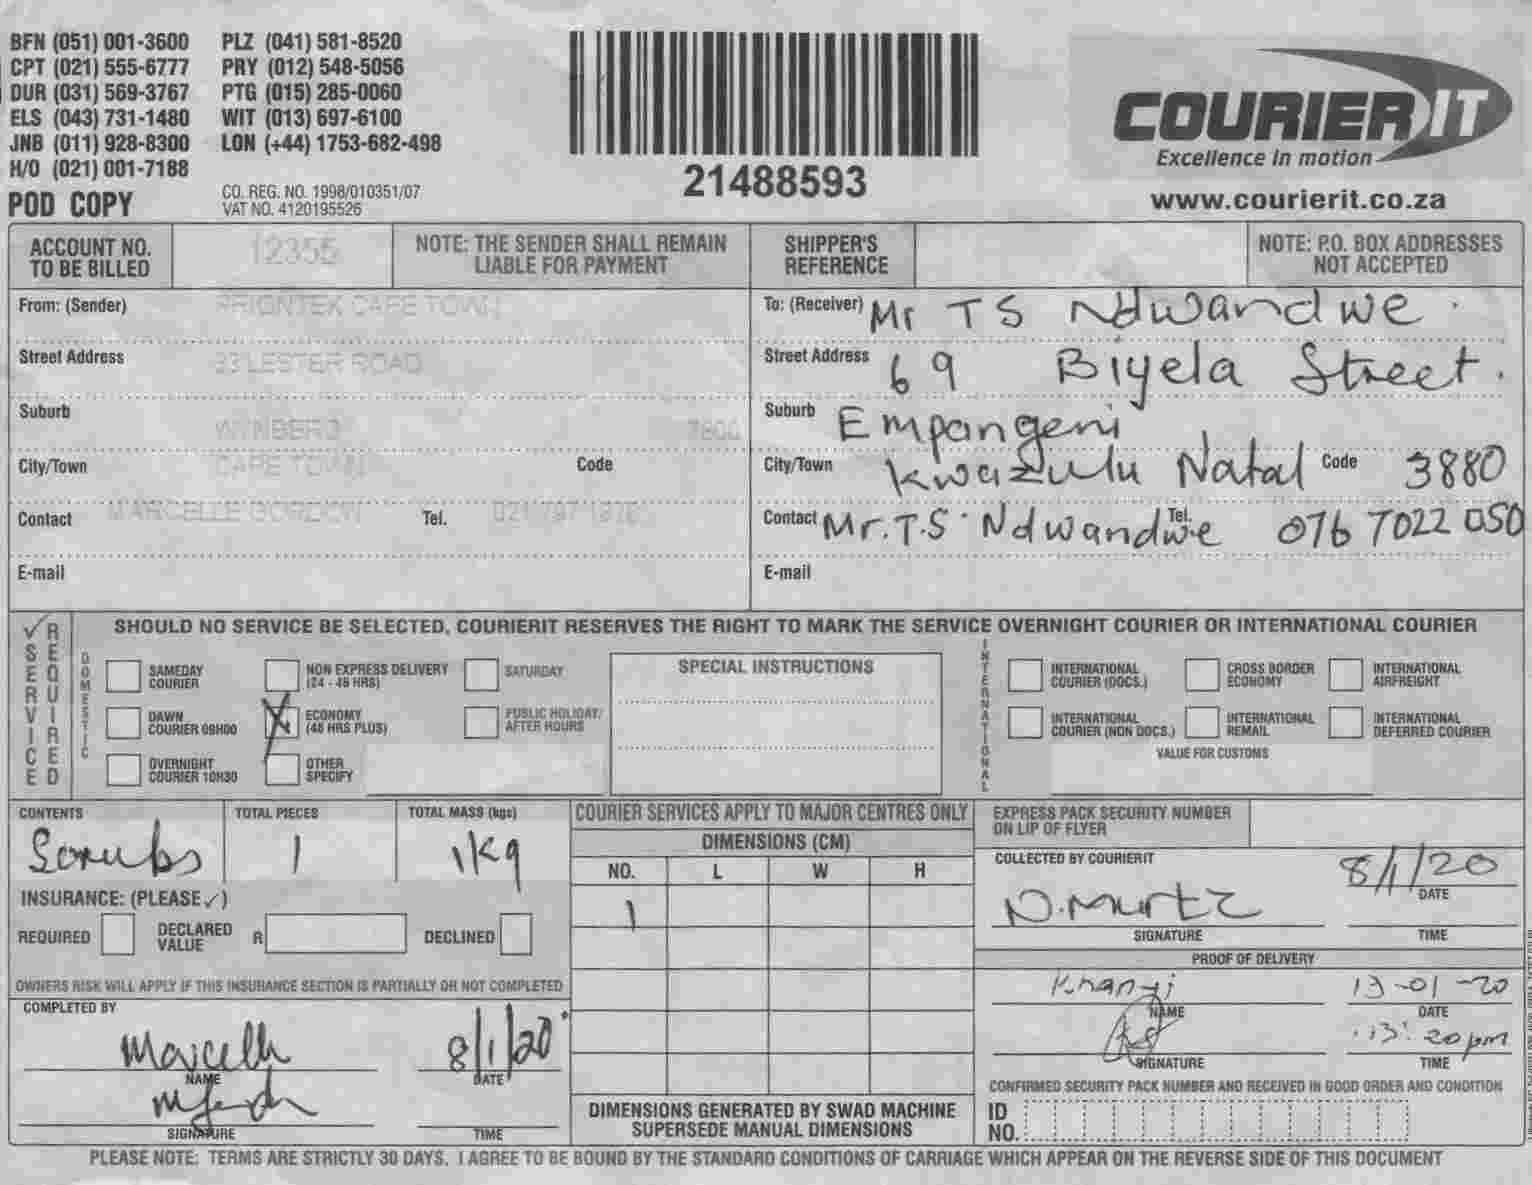 BFN (051) 001-3600 PLZ (041) 581-8520
CPT (021) 555-6777 PRY (012) 548-5056
DUR (031) 569-3767 PTG (015) 285-0060
ELS (043) 731-1480 WIT (013) 697-6100
JNB (011) 928-8300 LON (+44) 1753-682-498
H/O (021) 001-7188
POD COPY
CO. REG. NO. 1998/010351/07
VAT NO. 4120195526
21488593
COURIER IT
Excellence in motion
www.courierit.co.za
ACCOUNT NO. TO BE BILLED 12355
NOTE: THE SENDER SHALL REMAIN LIABLE FOR PAYMENT
SHIPPER'S REFERENCE
NOTE: P.O. BOX ADDRESSES NOT ACCEPTED
From: (Sender) CAPE TOWN
Street Address 33 LESTER ROAD
Suburb WYNBERG 7800
City/Town CAPE TOWN Code
Contact MARCELLE GORDON Tel. 021 797
E-mail
To: (Receiver) Mr TS Ndwandwe.
Street Address 69 Biyela Street.
Suburb Empangeni
City/Town Kwazulu Natal Code 3880
Contact Mr. T.S. Ndwandwe Tel. 076 7022 050
E-mail
✓ SERVICE REQUIRED
SHOULD NO SERVICE BE SELECTED, COURIERIT RESERVES THE RIGHT TO MARK THE SERVICE OVERNIGHT COURIER OR INTERNATIONAL COURIER
DOMESTIC
SAMEDAY COURIER
NON EXPRESS DELIVERY (24 - 48 HRS)
SATURDAY
DAWN COURIER 09H00
X ECONOMY (48 HRS PLUS)
PUBLIC HOLIDAY/ AFTER HOURS
OVERNIGHT COURIER 10H30
OTHER SPECIFY
SPECIAL INSTRUCTIONS
INTERNATIONAL
INTERNATIONAL COURIER (DOCS.)
CROSS BORDER ECONOMY
INTERNATIONAL AIRFREIGHT
INTERNATIONAL COURIER (NON DOCS.)
INTERNATIONAL REMAIL
INTERNATIONAL DEFERRED COURIER
VALUE FOR CUSTOMS
CONTENTS Scrubs
TOTAL PIECES 1
TOTAL MASS (kgs) 1kg
INSURANCE: (PLEASE ✓)
REQUIRED DECLARED VALUE R DECLINED
OWNERS RISK WILL APPLY IF THIS INSURANCE SECTION IS PARTIALLY OR NOT COMPLETED
COMPLETED BY
Marcelle 8/1/20
NAME DATE
SIGNATURE TIME
COURIER SERVICES APPLY TO MAJOR CENTRES ONLY
DIMENSIONS (CM)
NO. L W H
1
DIMENSIONS GENERATED BY SWAD MACHINE
SUPERSEDE MANUAL DIMENSIONS
EXPRESS PACK SECURITY NUMBER ON LIP OF FLYER
COLLECTED BY COURIERIT
8/1/20
DATE
SIGNATURE TIME
PROOF OF DELIVERY
Khanyi 13-01-20
NAME DATE
13:20pm
SIGNATURE TIME
CONFIRMED SECURITY PACK NUMBER AND RECEIVED IN GOOD ORDER AND CONDITION
ID NO.
PLEASE NOTE: TERMS ARE STRICTLY 30 DAYS. I AGREE TO BE BOUND BY THE STANDARD CONDITIONS OF CARRIAGE WHICH APPEAR ON THE REVERSE SIDE OF THIS DOCUMENT